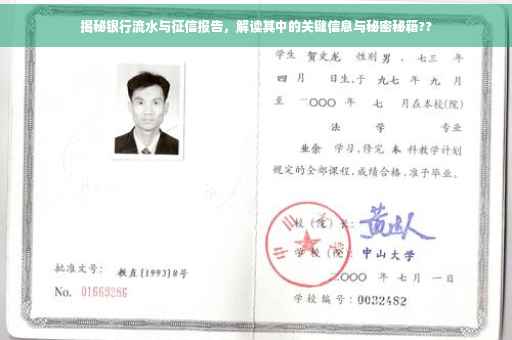 揭秘银行流水与征信报告，解读其中的关键信息与秘密秘籍??
学生 贺文龙 性别 男 ，七三 年
四 月 日生，于 九七 年 九 月
至 二〇〇〇 年 七 月在本校(院)
法 学 专业
业余 学习，修完 本 科教学计划
规定的全部课程，成绩合格，准予毕业。
校 (院) 长：
学 校 (院)： 中山大学
二〇〇〇 年 七 月 一 日
学校编号：0032482
批准文号： 教直(1993)8号
No. 01669286